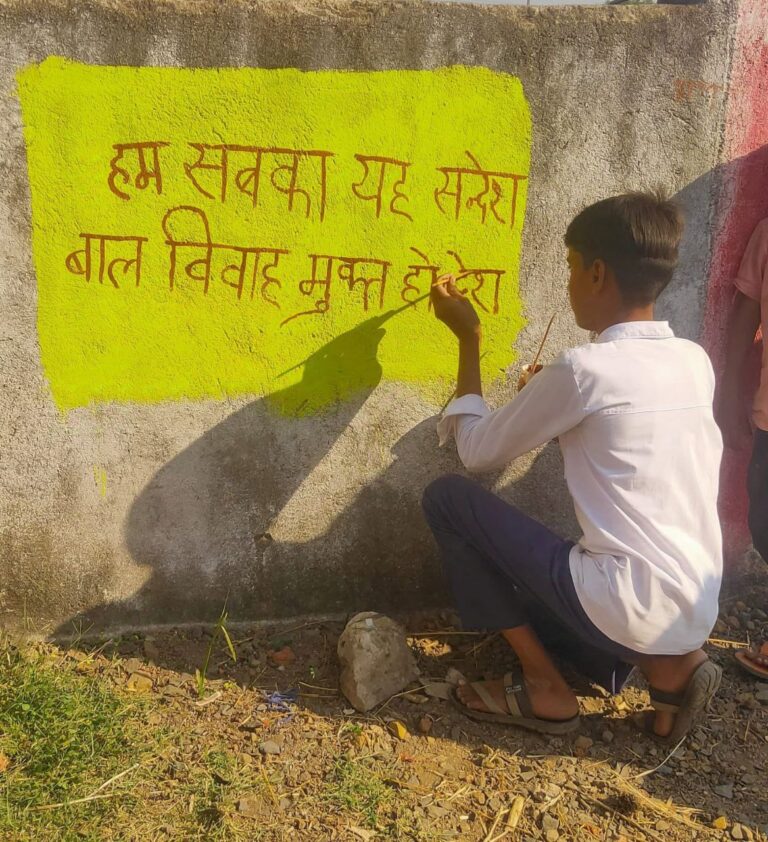 हम सबका यह सन्देश
बाल विवाह मुक्त हो देश